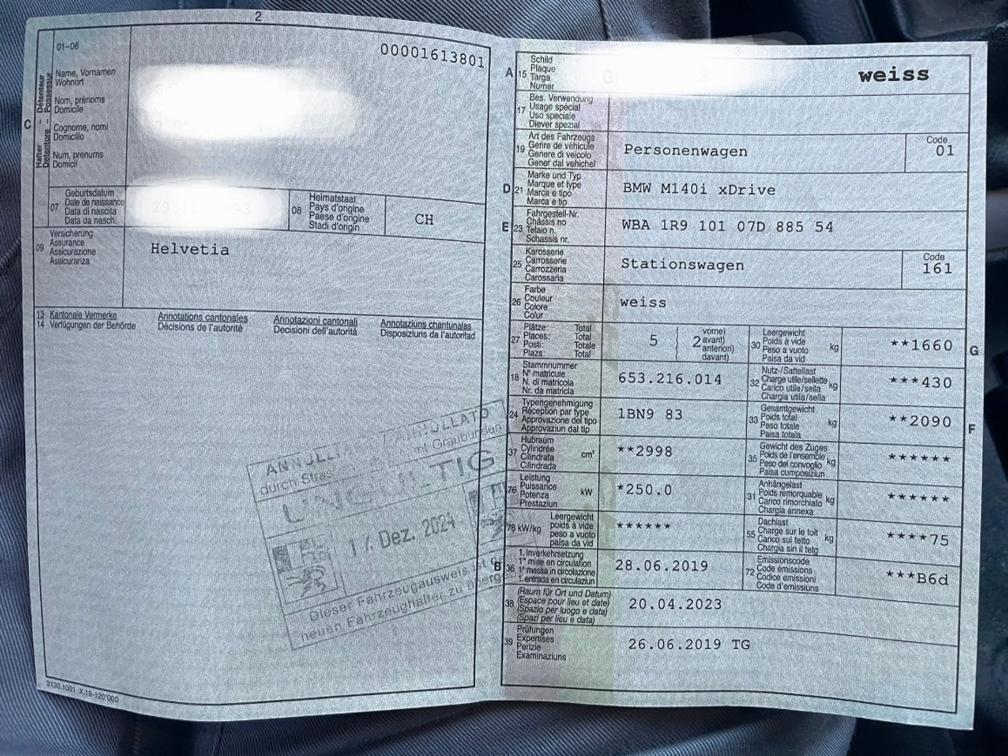 2
01-06
00001613801
C
Halter - Détenteur
Detentore - Possessur
Name, Vornamen
Wohnort
Nom, prénoms
Domicile
Cognome, nomi
Domicilio
Num, prenums
Domicil
07
Geburtsdatum
Date de naissance
Data di nascita
Data da nasch.
08
Heimatstaat
Pays d'origine
Paese d'origine
Stadi d'origin
CH
09
Versicherung
Assurance
Assicurazione
Assicuranza
Helvetia
13 Kantonale Vermerke
14 Verfügungen der Behörde
Annotations cantonales
Décisions de l'autorité
Annotazioni cantonali
Decisioni dell'autorità
Annotaziuns chantunalas
Disposiziuns da l'autoritad
ANNULLATO
durch Strass
mt Graubünden
UNGÜLTIG
17. Dez. 2024
Dieser Fahrzeugausweis ist
neuen Fahrzeughalter zu überge
3130.1001 X.18-120'000
A 15
Schild
Plaque
Targa
Numer
weiss
17
Bes. Verwendung
Usage spécial
Uso speciale
Diever spezial
19
Art des Fahrzeugs
Genre de véhicule
Genere di veicolo
Gener dal vehichel
Personenwagen
Code
01
D 21
Marke und Typ
Marque et type
Marca e tipo
Marca e tip
BMW M140i xDrive
E 23
Fahrgestell-Nr.
Châssis no
Telaio n.
Schassis nr.
WBA 1R9 101 07D 885 54
25
Karosserie
Carrosserie
Carrozzeria
Carossaria
Stationswagen
Code
161
26
Farbe
Couleur
Colore
Colur
weiss
27
Plätze: Total
Places: Total
Posti: Totale
Plazs: Total
5
2
vorne)
avant)
anteriori)
davant)
30
Leergewicht
Poids à vide
Peso a vuoto
Paisa da vid
kg
**1660
G
18
Stammnummer
N° matricule
N. di matricola
Nr. da matricla
653.216.014
32
Nutz-/Sattellast
Charge utile/sellette
Carico utile/sella
Chargia utila/sella
kg
***430
24
Typengenehmigung
Réception par type
Approvazione del tipo
Approvaziun dal tip
1BN9 83
33
Gesamtgewicht
Poids total
Peso totale
Paisa totala
kg
**2090
F
37
Hubraum
Cylindrée
Cilindrata
Cilindrada
cm³
**2998
35
Gewicht des Zuges
Poids de l'ensemble
Peso del convoglio
Paisa cumposiziun
kg
******
76
Leistung
Puissance
Potenza
Prestaziun
kW
*250.0
31
Anhängelast
Poids remorquable
Carico rimorchiato
Chargia annexa
kg
******
78 kW/kg
Leergewicht
poids à vide
peso a vuoto
paisa da vid
******
55
Dachlast
Charge sur le toit
Carico sul tetto
Chargia sin il tetg
kg
****75
B 36
1. Inverkehrsetzung
1re mise en circulation
1a messa in circolazione
1. entrada en circulaziun
28.06.2019
72
Emissionscode
Code émissions
Codice emissioni
Code d'emissiuns
***B6d
38
(Raum für Ort und Datum)
(Espace pour lieu et date)
(Spazio per luogo e data)
(Spazi per lieu e data)
20.04.2023
39
Prüfungen
Expertises
Perizie
Examinaziuns
26.06.2019 TG